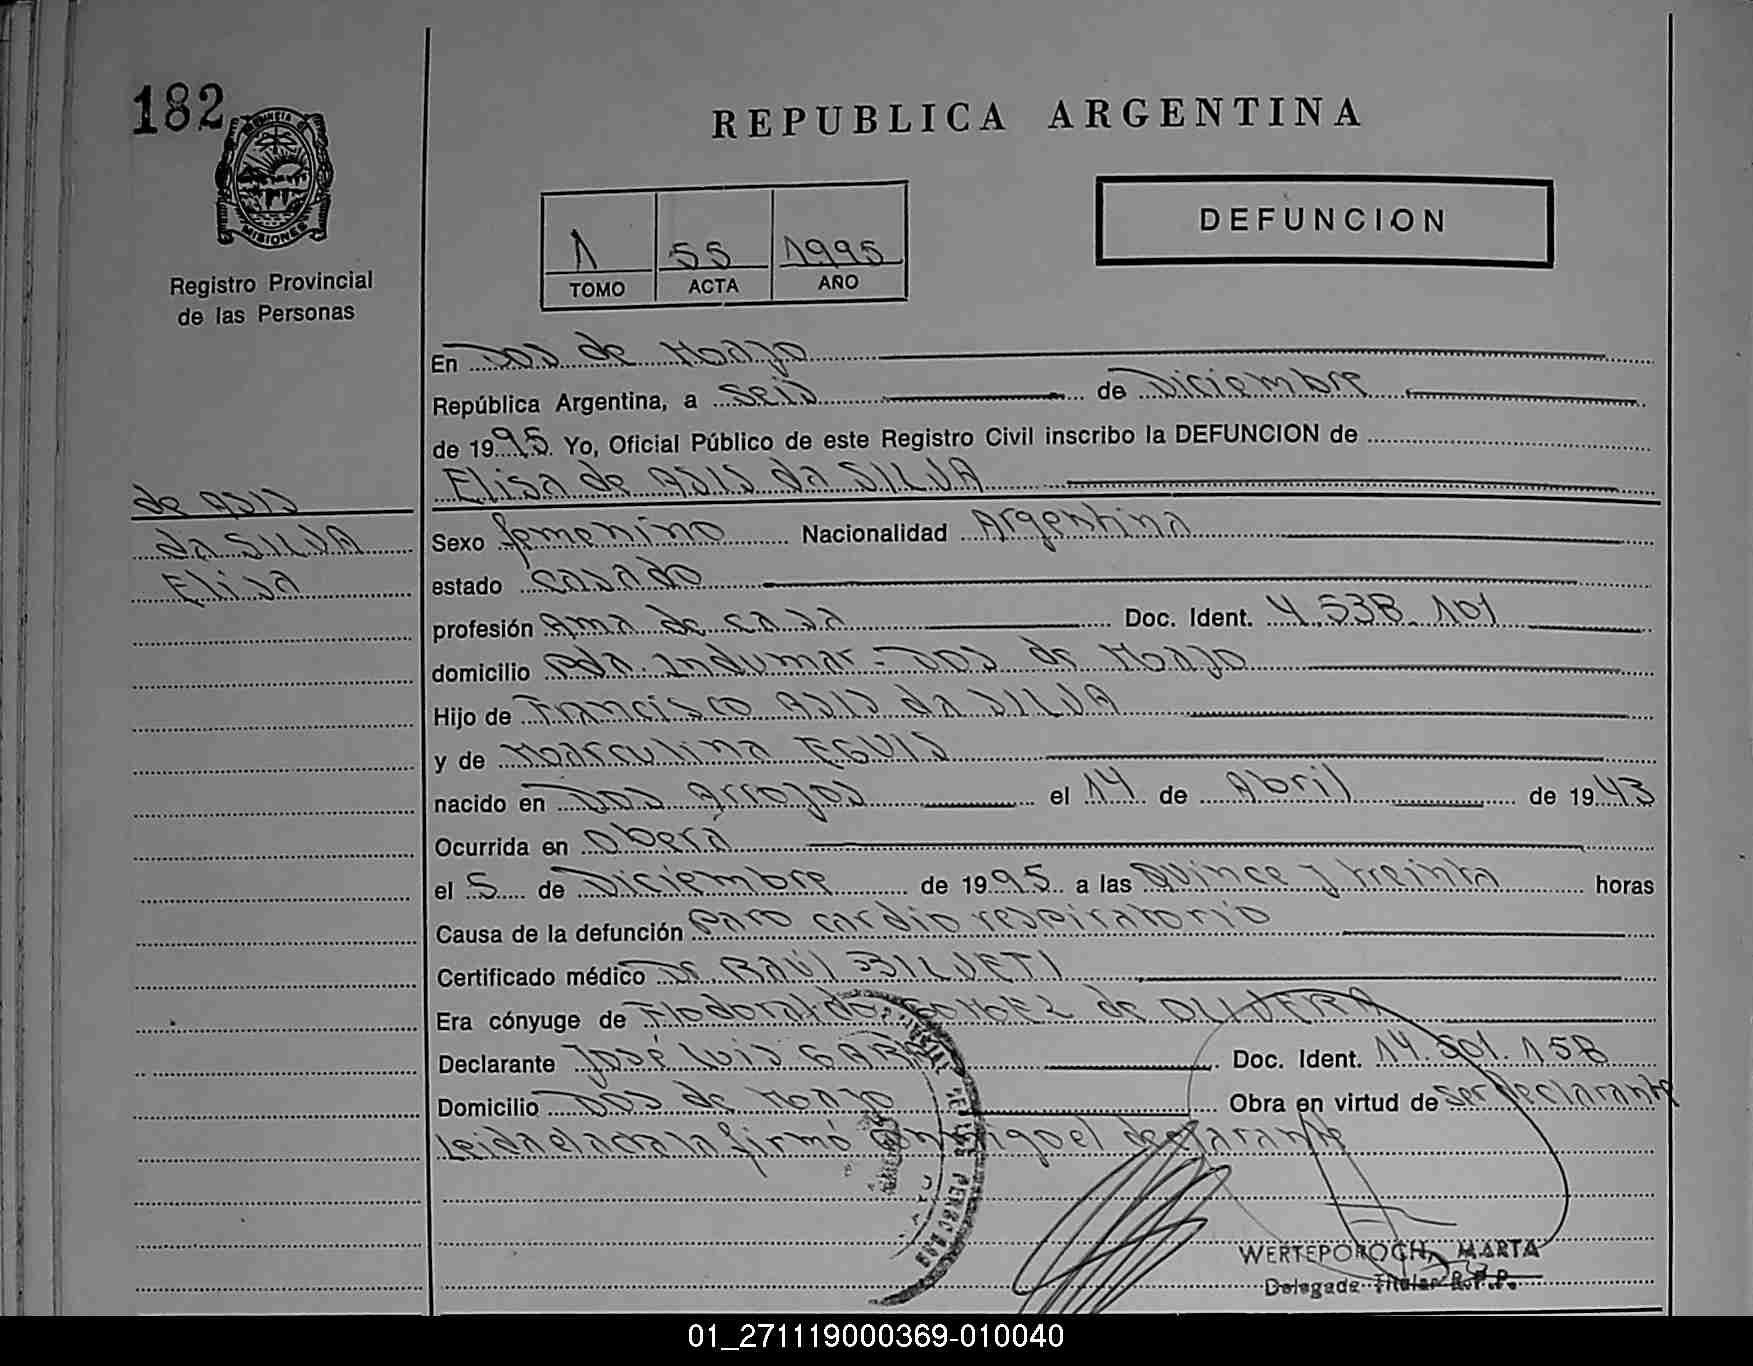 182
REPUBLICA ARGENTINA
MISIONES
Registro Provincial
de las Personas
1 55 1995
TOMO ACTA AÑO
DEFUNCION
En Dos de Mayo
República Argentina, a Seis de Diciembre
de 1995. Yo, Oficial Público de este Registro Civil inscribo la DEFUNCION de
Elisa de ASIS da SILVA
de ASIS
da SILVA
Elisa
Sexo femenino Nacionalidad Argentina
estado casado
profesión Ama de casa Doc. Ident. 4.538.101
domicilio Pda. Indumar - Dos de Mayo
Hijo de Francisco ASIS da SILVA
y de Marculina EGUIS
nacido en Dos Arroyos el 14 de Abril de 1943
Ocurrida en Oberá
el 5 de Diciembre de 1995 a las Quince y treinta horas
Causa de la defunción Paro cardio respiratorio
Certificado médico Dr RAÚl BILVETI
Era cónyuge de de OLIVERA
Declarante José Luis Doc. Ident. 14.501.158
Domicilio Dos de Mayo Obra en virtud de ser declarante
Leida el acta la firmó el declarante
WERTEPOROCH, MARTA
Delegade Titular R.P.P.
01_271119000369-010040